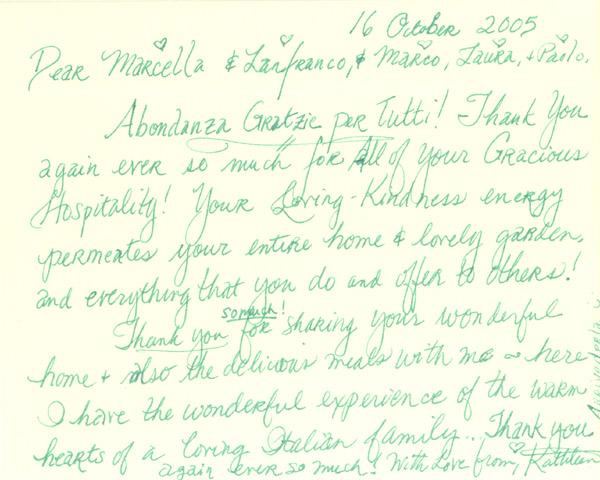 16 October 2005
Dear Marcella & Lanfranco, & Marco, Laura, + Paolo,
Abondanza Gratzie per Tutti! Thank You
again ever so much for All of your Gracious
Hospitality! Your Loving-Kindness energy
permeates your entire home & lovely garden,
and everything that you do and offer to others!
so much!
Thank you for sharing your wonderful
home + also the delicious meals with me ~ here
I have the wonderful experience of the warm
hearts of a loving Italian family... Thank you
again ever so much! With Love from, Kathleen